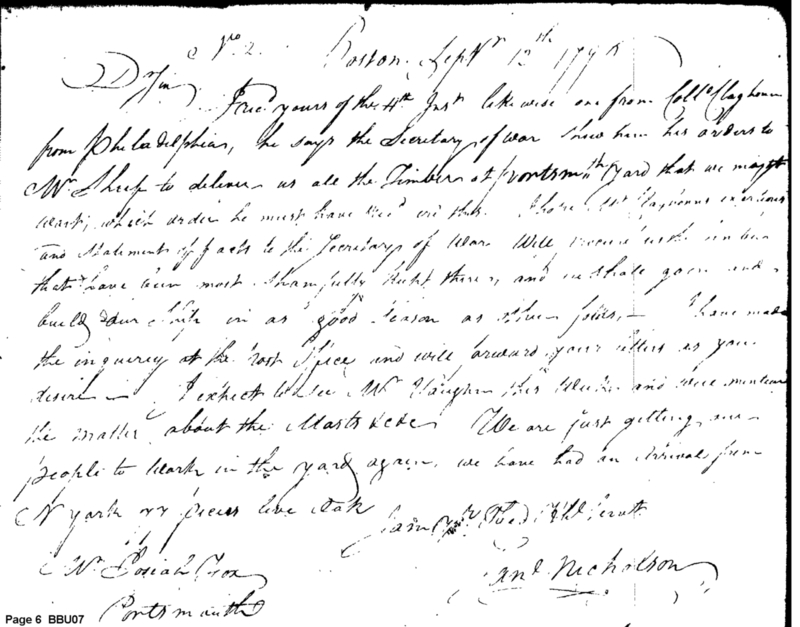 No 2. Boston Septr 12th 179
D Sir
I recd yours of the 4th Inst likewise one from Coll Claghorn
from Philadelphia, he says the Secretary of war shew him his orders to
Mr Sheaf to deliver us all the Timber at Portsmth Yard that we might
want, which order he must have recd ere this. I hope Mr Claghorns exertions
and Statement of facts to the Secretary of War Will us the timber
that have been most shamfully kept there, and we shall goon and
build our Ship in as good season as other folks, — I have made
the inquirey at the Post Ofice and will forward your letters as you
desire — I expect to see Mr Vaughn this Week and will mention
the matter about the Masts &c. We are just getting our
people to Work in the yard again, we have had an Arrival from
N York pieces live Oak
I am Sr
Mr Josiah Fox Saml Nicholson
Portsmouth
Page 6 BBU07